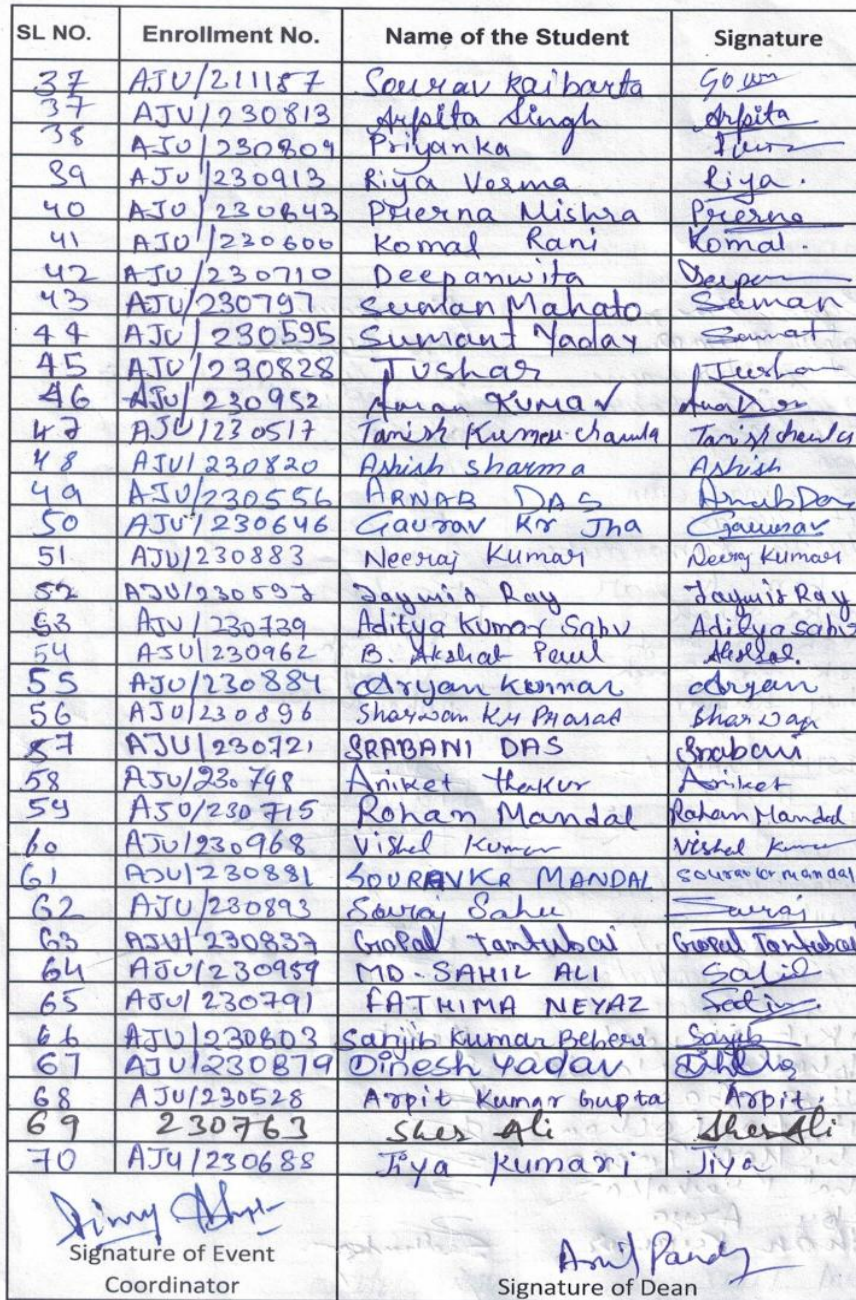 SL NO. Enrollment No. Name of the Student Signature
37 AJU/211187 Sourav Kaibarta Sourav
37 AJU/230813 Arpita Singh Arpita
38 AJU/230809 Priyanka
39 AJU/230913 Riya Verma Riya.
40 AJU/230843 Prerna Mishra Prerna
41 AJU/230600 Komal Rani Komal.
42 AJU/230710 Deepanwita Deepan
43 AJU/230797 Suman Mahato Suman
44 AJU/230595 Sumant Yadav Sumant
45 AJU/230828 Tushar Tushar
46 AJU/230952 Aman Kumar
47 AJU/230517 Tanish Kumar Chawla Tanish Chawla
48 AJU/230820 Ashish Sharma Ashish
49 AJU/230556 ARNAB DAS Arnab Das
50 AJU/230646 Gaurav Kr Jha Gaurav
51. AJU/230883 Neeraj Kumar Neeraj Kumar
52 AJU/230597 Jaymit Ray Jaymit Ray
53 AJU/230739 Aditya Kumar Sahu Aditya Sahu
54 AJU/230962 B. Akshat Paul Akshat.
55 AJU/230884 Aryan Kumar Aryan
56 AJU/230896 Sharwan Kr Prasad Sharwan
57 AJU/230721 SRABANI DAS Srabani
58 AJU/230798 Aniket Thakur Aniket
59 AJU/230715 Rohan Mandal Rohan Mandal
60 AJU/230968 Vishal Kumar Vishal Kumar
61 AJU/230881 SOURAV KR MANDAL Sourav kr mandal
62 AJU/230893 Souraj Sahu Suraj
63 AJU/230837 Gopal Tantubai Gopal Tantubai
64 AJU/230959 MD. SAHIL ALI Sahil
65 AJU/230791 FATHIMA NEYAZ
66 AJU/230803 Sanjib Kumar Behera Sanjib
67 AJU/230879 Dinesh Yadav
68 AJU/230528 Arpit Kumar Gupta Arpit.
69 230763 Sher Ali Sher Ali
70 AJU/230688 Jiya Kumari Jiya
Signature of Event
Coordinator
Signature of Dean